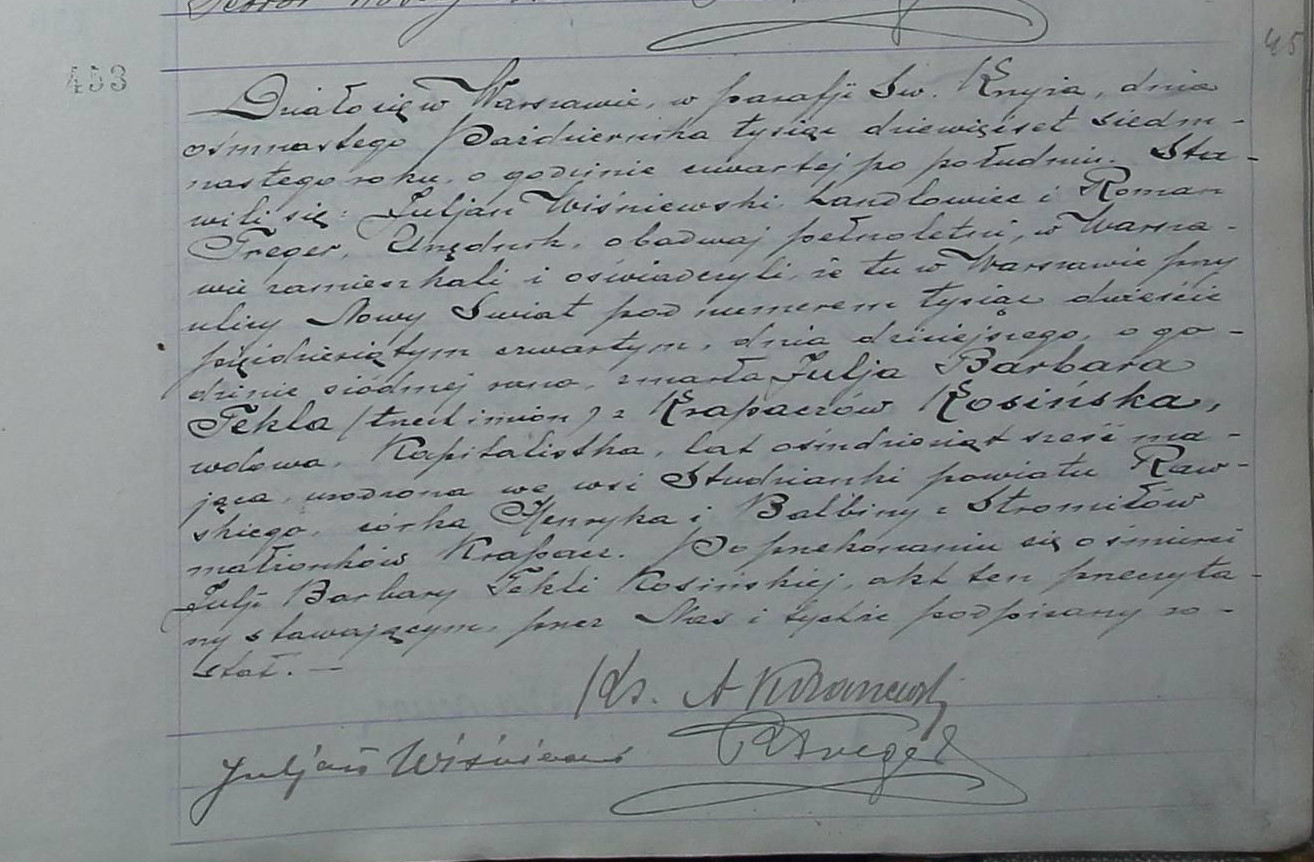 453
45
Działo się w Warszawie, w parafji Św. Krzyża, dnia
ośmnastego Października tysiąc dziewięćset siedm-
nastego roku, o godzinie czwartej po południu. Sta-
wili się: Juljan Wiśniewski handlowiec i Roman
Treger, Urzędnik, obadwaj pełnoletni, w Warsza-
wie zamieszkali i oświadczyli, że tu w Warszawie przy
ulicy Nowy Świat pod numerem tysiąc dwieście
pięćdziesiątym czwartym, dnia dzisiejszego, o go-
dzinie siódmej rano, zmarła Julja Barbara
Tekla (trzech imion) z Krapaczów Kosińska,
wdowa, Kapitalistka, lat ośmdziesiąt sześć ma-
jąca, urodzona we wsi Studzianki powiatu Raw-
skiego, córka Henryka i Balbiny z Stromiłów
małżonków Krapacz. Po przekonaniu się o śmierci
Julji Barbary Tekli Kosińskiej, akt ten przeczyta-
ny stawającym, przez Nas i tychże podpisany zo-
stał. —
Ks. A
Juljan Wiśniewski RTreger